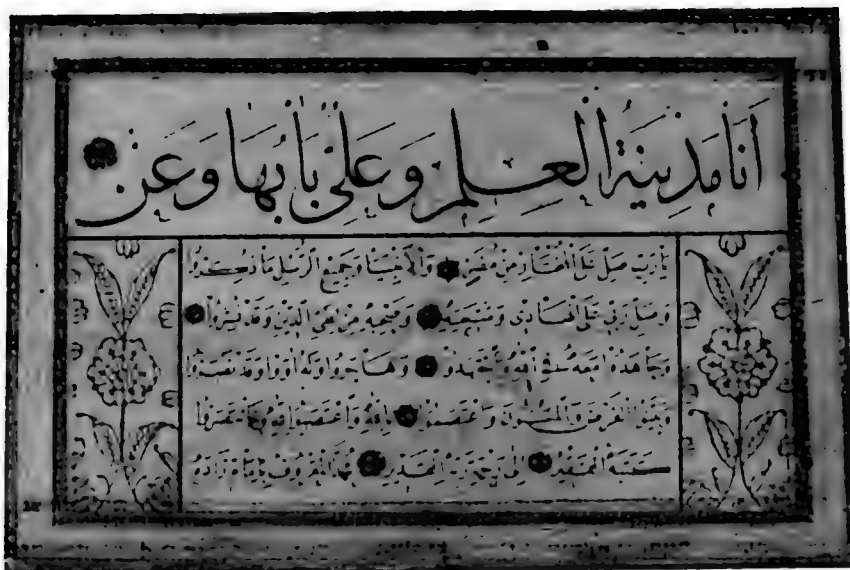 اَنَا مَدِينَةُ الْعِلْمِ وَعَلِيٌّ بَابُهَا وَعَن
يَا رَبِّ صَلِّ عَلَى الْمُخْتَارِ مِنْ مُضَرٍ وَالْأَنْبِيَا وَجَمِيعِ الرُّسْلِ مَا ذُكِرُوا
وَصَلِّ رَبِّ عَلَى الْهَادِي وَشِيعَتِهِ وَصَحْبِهِ مَنْ لِطَيِّ الدِّينِ قَدْ نَشَرُوا
وَجَاهَدُوا مَعَهُ فِي اللهِ وَاجْتَهَدُوا وَهَاجَرُوا وَلَهُ آوَوْا وَقَدْ نَصَرُوا
وَبَيَّنُوا الْفَرْضَ وَالْمَسْنُونَ وَاعْتَصَبُوا لِلهِ وَاعْتَصَمُوا بِاللهِ فَانْتَصَرُوا
كتبه الفقير الى رحمة